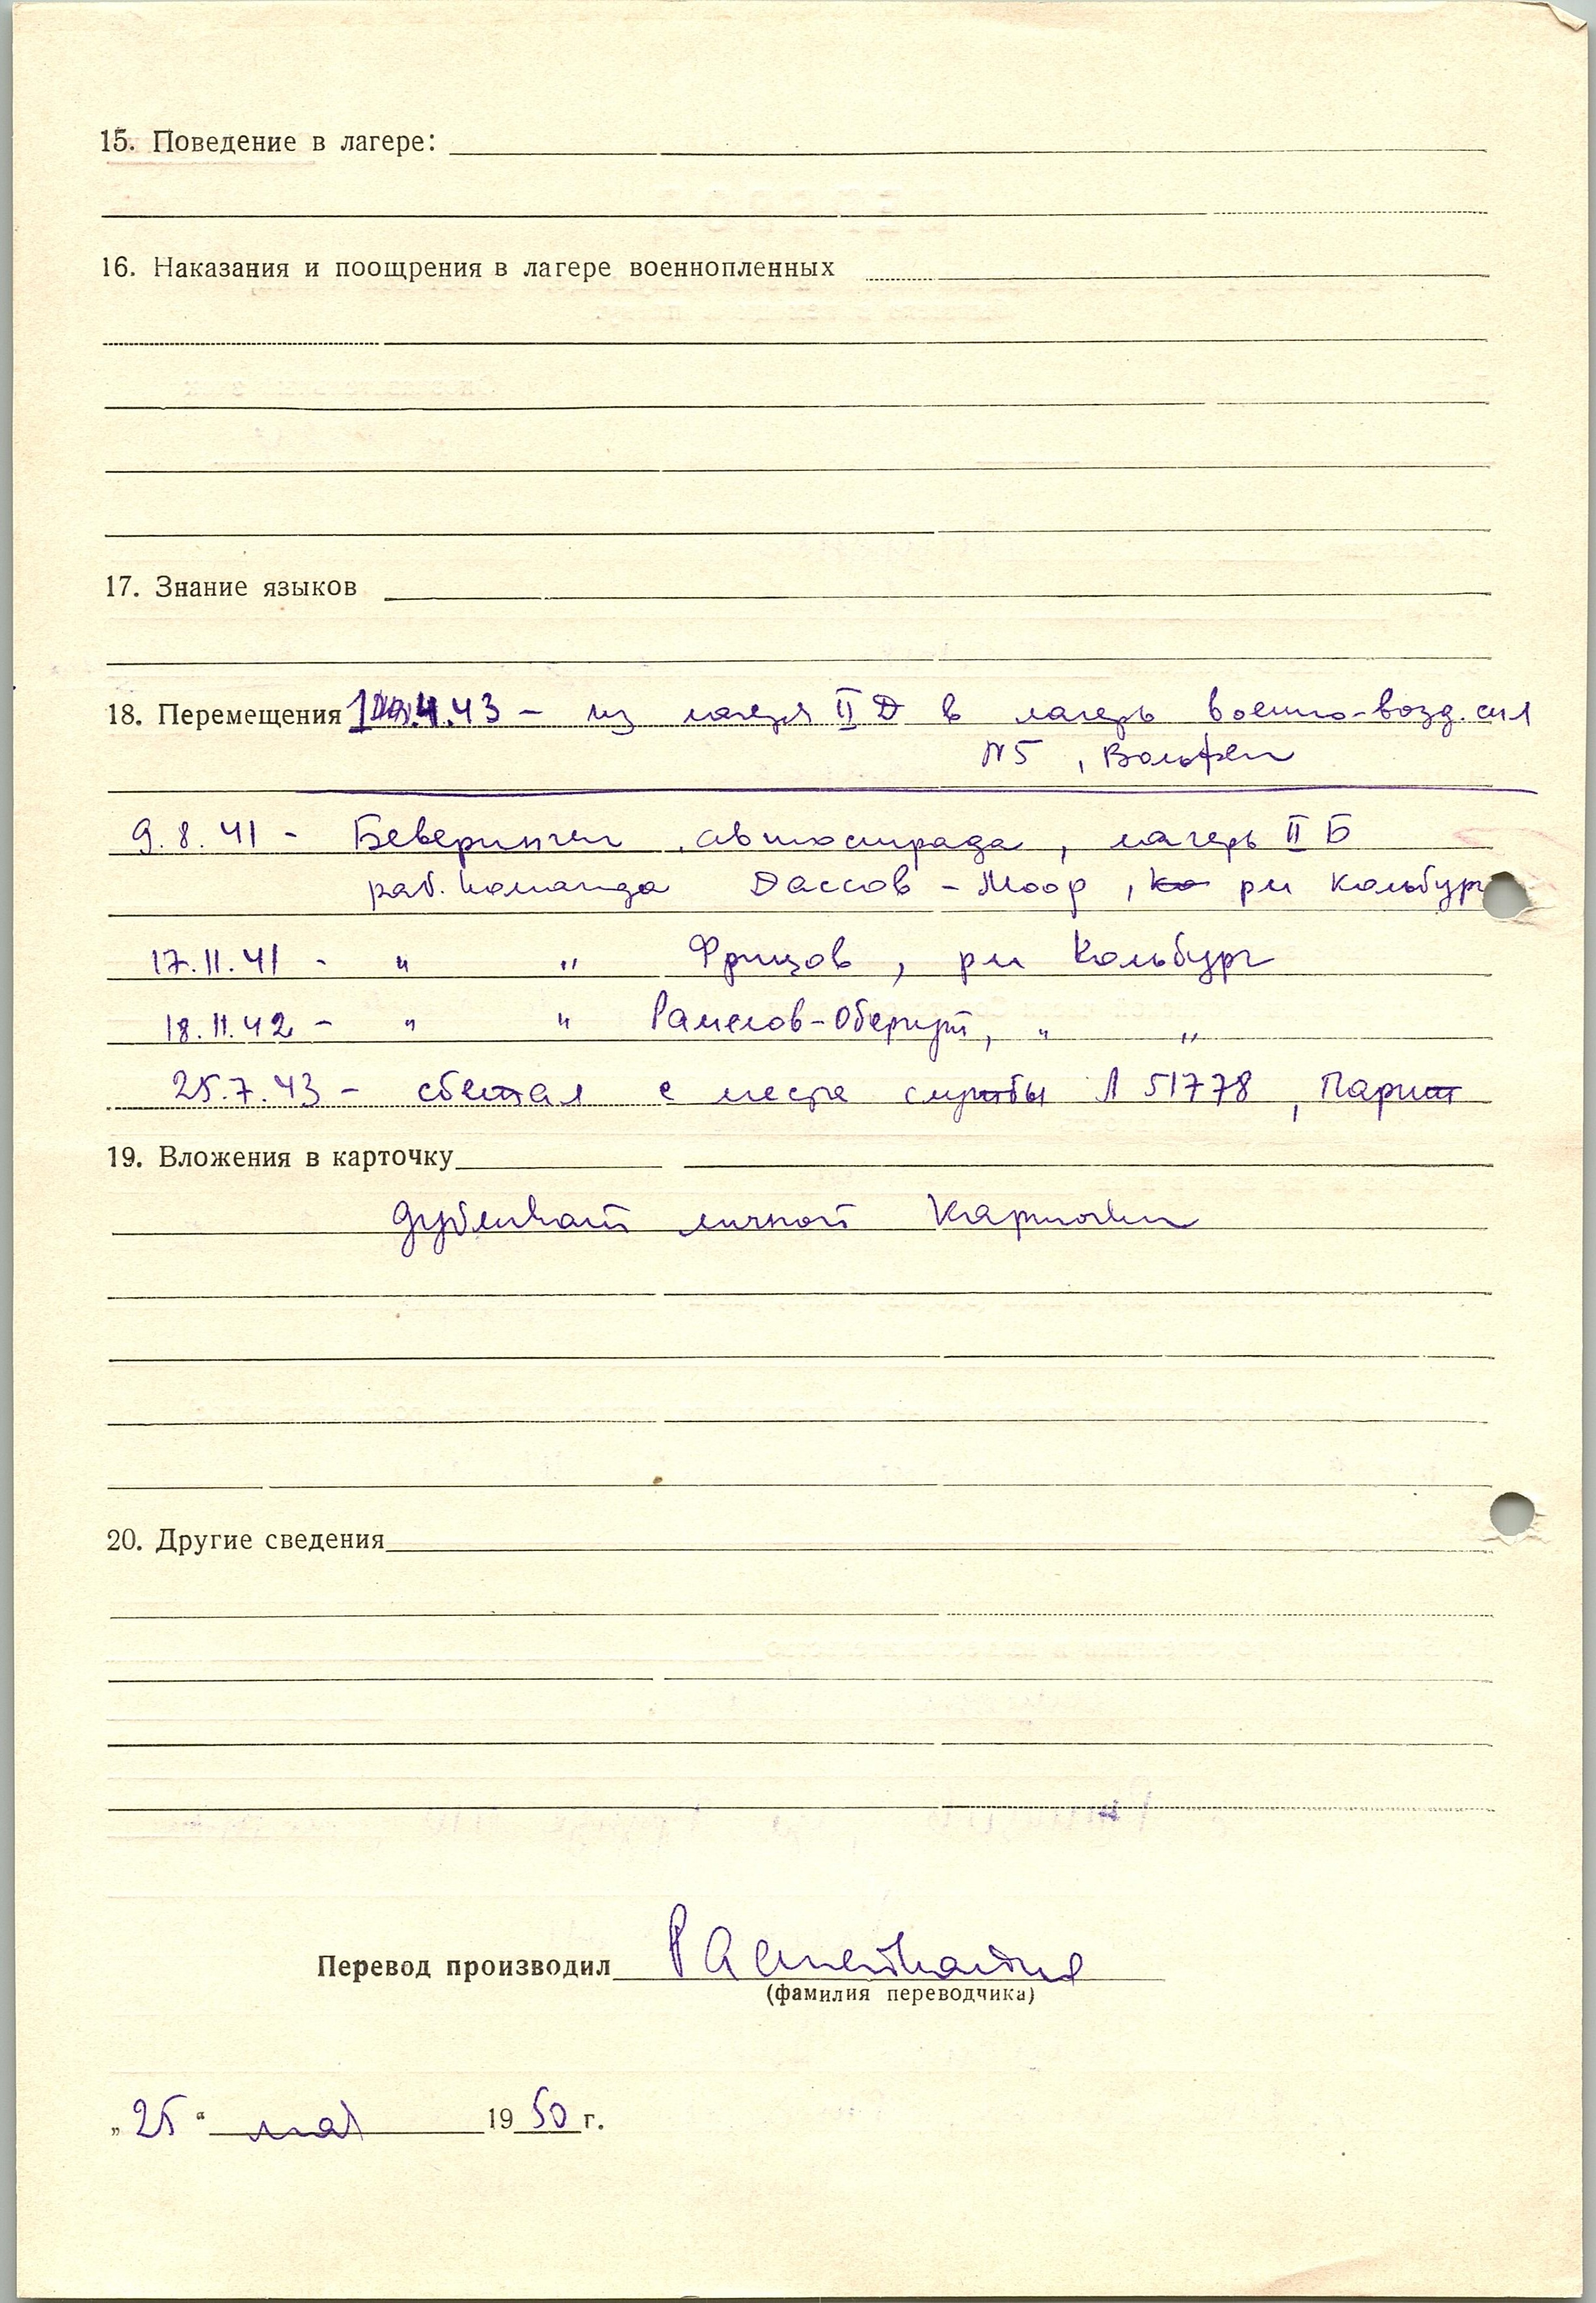 15. Поведение в лагере:
16. Наказания и поощрения в лагере военнопленных
17. Знание языков
18. Перемещения .4.43 – из лагеря II Д в лагерь военно-возд. сил
N5 , Вольфен
9.8.41 - Беверинген , автострада , лагерь II Б
раб. команда Дассов - Моор , рн Кольбург
17.11.41 - " " Фрицов , рн Кольбург
18.11.42 - " " Рамелов-Обергут, " "
25.7.43 - сбежал с места службы Л 51778 , Париж
19. Вложения в карточку
дубликат личной карточки
20. Другие сведения
Перевод производил
(фамилия переводчика)
„25“ мая 1950 г.